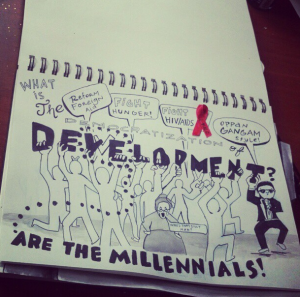 WHAT
IS
The
Reform
Foreign
Aid
FIGHT
HUNGER!
FIGHT
HIV/AIDS
OPPAN
GANGAM
STYLE!
DEMOCRATIZATION
OF
DEVELOPMENT?
ARE THE MILLENNIALS!